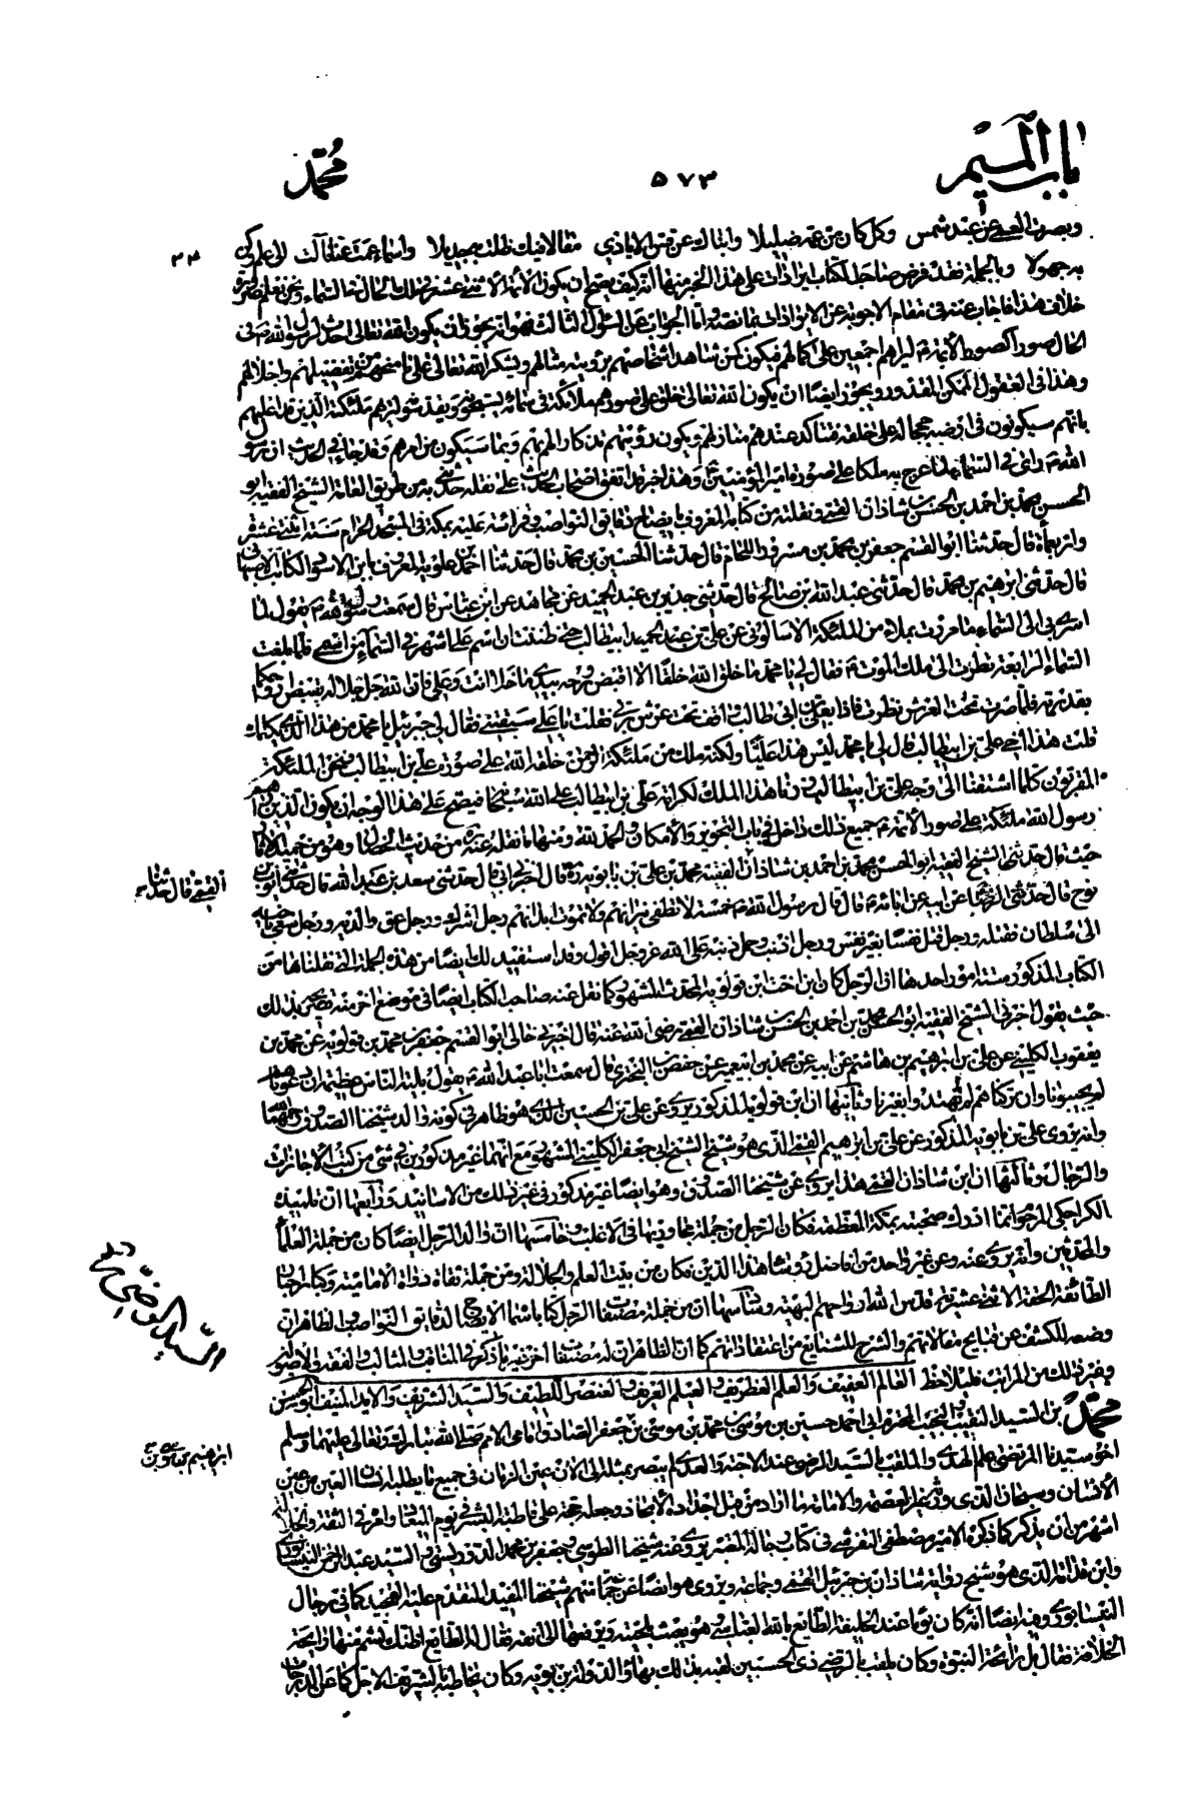 باب الميم
٥٧٣
محمد
وبصرت العمى عن عبد شمس وكل كان من عمه ضليلا وانبأك عن قس الايادي مقالا فيك ظلت به جديلا واسماء عمت عنا فآلت الى علم وكن
به جهولا وبالجملة فقد فرض صاحب الكتاب ايرادات على هذا الخبر منها انه كيف يصح ان يكون الائمة الاثنى عشر في تلك الحال في السماء ونحن نعلم ضرورة
خلاف هذا فاجاب عنه في مقام الاجوبة عن الايرادات بما نصه واما الجواب عن السؤال الثالث فهو انه يجوز ان يكون الله تعالى احدث لرسول الله ص في
الحال صورا كصور الائمة ع ليراهم اجمعين على كمالهم فيكون كمن شاهد اشخاصهم برؤيته مثالهم ويشكر الله تعالى على ما منحه من تفضيلهم واجلالهم
وهذا في العقول الممكن المقدور ويجوز ايضا ان يكون الله تعالى خلق على صورهم ملائكة في سمائه يسبحونه ويقدسونه ليراهم ملائكته الذين قد اعلمهم
بانهم سيكونون في ارضه حججا له على خلقه فتتأكد عندهم منازلهم ويكون رؤيتهم تذكارا لهم بهم وبما سيكون من امرهم وقد جاء في الحديث ان رسول
الله ص رأى في السماء لما عرج به ملكا على صورة امير المؤمنين ع وهذا خبر قد اتفق اصحاب الحديث على نقله حدثني به من طريق العامة الشيخ الفقيه ابو
الحسن محمد بن احمد بن الحسن بن شاذان القمي ونقلته من كتابه المعروف بايضاح دقائق النواصب وقرأته عليه بمكة في المسجد الحرام سنة اثنى عشرة
واربعمأة قال حدثنا ابو القسم جعفر بن محمد بن مسرور اللحام قال حدثنا الحسين بن محمد قال حدثنا احمد بن علوية المعروف بابن الاسود الكاتب الاصبهاني
قال حدثني ابرهيم بن محمد قال حدثني عبد الله بن صالح قال حدثني جدير بن عبد الحميد عن مجاهد عن ابن عباس قال سمعت رسول الله ص يقول لما
اسري بي الى السماء ما مررت بملاء من الملئكة الا سألوني عن علي بن ابيطالب حتى ظننت ان اسم علي اشهر في السماء من اسمي فلما بلغت
السماء الرابعة نظرت الى ملك الموت ع فقال لي يا محمد ما خلق الله خلقا الا اقبض روحه بيدي ما خلا انت وعلي فان الله جل جلاله يقبض ارواحكما
بقدرته فلما صرت تحت العرش نظرت فاذا بعلي بن ابي طالب واقف تحت عرش ربي فقلت يا علي سبقتني فقال لي جبرئيل يا محمد من هذا الذي يكلمك
قلت هذا اخي علي بن ابيطالب قال لي يا محمد ليس هذا عليا ولكنه ملك من ملئكة الرحمن خلقه الله على صورة علي بن ابيطالب فنحن الملئكة
المقربون كلما اشتقنا الى وجه علي بن ابيطالب زرنا هذا الملك لكرامة علي بن ابيطالب على الله سبحانه فيصح على هذا الوجه ان يكون الذين راهم
رسول الله ملئكة على صور الائمة ع جميع ذلك داخل في باب التجويز والامكان والحمد لله ومنها ما نقله عنه
حيث قال حدثني الشيخ الفقيه ابو الحسن محمد بن احمد بن شاذان الفقيه محمد بن علي بن بابويه ره قال اخبرني ابي قال حدثني سعد بن عبد الله قال حدثني ايوب بن
نوح قال حدثني الرضا ع عن ابيه عن آبائه ع قال قال رسول الله ص خمسة لا تطفى نيرانهم ولا تموت ابدانهم رجل اشرك ورجل عق والديه ورجل سعى باخيه
الى سلطان فقتله ورجل قتل نفسا بغير نفس ورجل اذنب وحمل ذنبه على الله عز وجل اقول وقد استفيد لك ايضا من هذه الجملة التي نقلناها من
الكتاب المذكور ستة امور احدها ان الرجل كان ابن اخت ابن قولويه المحدث المشهور كما نقل عنه صاحب الكتاب ايضا في موضع اخر منه تصريحه بذلك
حيث يقول اخبرني الشيخ الفقيه ابو الحسن محمد بن احمد بن الحسن بن شاذان القمي رضي الله عنه قال اخبرني خالي ابو القسم جعفر بن محمد بن قولويه عن محمد بن
يعقوب الكليني عن علي بن ابرهيم بن هاشم عن ابيه عن محمد بن ابي عمير عن حفص بن البختري قال سمعت ابا عبد الله ع يقول بلية الناس عظيمة ان دعوناهم
لم يجيبونا وان تركناهم لم يهتدوا بغيرنا وثانيها ان ابن قولويه المذكور يروي عن علي بن الحسين الذي هو ظاهر في كونه والد شيخنا الصدوق
وانه يروي علي بن بابويه المذكور عن علي بن ابرهيم القمي الذي هو شيخ الشيخ ابي جعفر الكليني المشهور مع انهما غير مذكورين في شيء من كتب الاجازات
والرجال وثالثها ان ابن شاذان القمي هذا يروي عن شيخنا الصدوق وهو ايضا غير مذكور في غير ذلك من الاسانيد ورابعها ان تلميذه
الكراجكي المرحوم انما ادرك صحبته بمكة المعظمة فكان الرجل من جملة مجاوريها في الاغلب خامسها ان والد الرجل ايضا كان من جملة العلماء
والمحدثين وانه يروي عنه وعن غير واحد من افاضل
الطائفة الحقة الاثنى عشرية قدس الله ارواحهم البهية وسادسها ان من جملة مصنفات الرجل كتابا سماه الايضاح لدقائق النواصب والظاهر ان
وضعه للكشف عن قبايح مقالاتهم والشرح لشنايع من اعتقاداتهم كما ان الظاهر ان له مصنفات اخر غير ما ذكر في المناقب والمثالب والفقه والاصول
وغير ذلك من المراتب فليلاحظ العالم العفيف والعلم الغطريف والعيلم العريف والعنصر اللطيف والسيد الشريف والايد المنيف ابو الحسن
محمد بن السيد النقيب والنجيب المحترم ابي احمد حسين بن موسى بن محمد بن موسى بن جعفر الصادق امامي الامم صلى الله تبارك وتعالى عليهما وسلم
اخو سيدنا المرتضى علم الهدى والملقب بالسيد الرضي عند الاحبة والعدى لم يبصر بمثله الى الآن عين الزمان في جميع ما يطلبه انسان العين من عين
الانسان وسبحان الذي ورثه غير العصمة والامامة ما اراد من قبل اجداده الامجاد وجعله حجة على قاطبة البشر في يوم الميعاد وامره في الثقة والجلالة
اشهر من ان يذكر كما ذكره الامير مصطفى التفرشي في كتاب رجاله المعتبر يروي عنه شيخنا الطوسي وجعفر بن محمد الدوريستي والسيد عبد الرحمن النيسابوري
وابن قدامة الذي هو شيخ رواية شاذان بن جبرئيل القمي وجماعة ويروي هو ايضا عن جماعة منهم شيخنا المفيد المتقدم عليه التمجيد كما في رجال
النيسابوري وفيه ايضا انه كان يوما عند الخليفة الطائع بالله العباسي وهو يعبث بلحيته ويرفعها الى انفه فقال له الطايع اظنك تشم منها رايحة
الخلافة فقال بل رائحة النبوة وكان يلقب بالرضي ذي الحسبين لقبه بذلك بهاء الدولة بن بويه وكان يخاطبه بالشريف الاجل كما عن الدرجات
القمي قال حدثنا
السيد الرضي
ابراهيم بن موسى بن